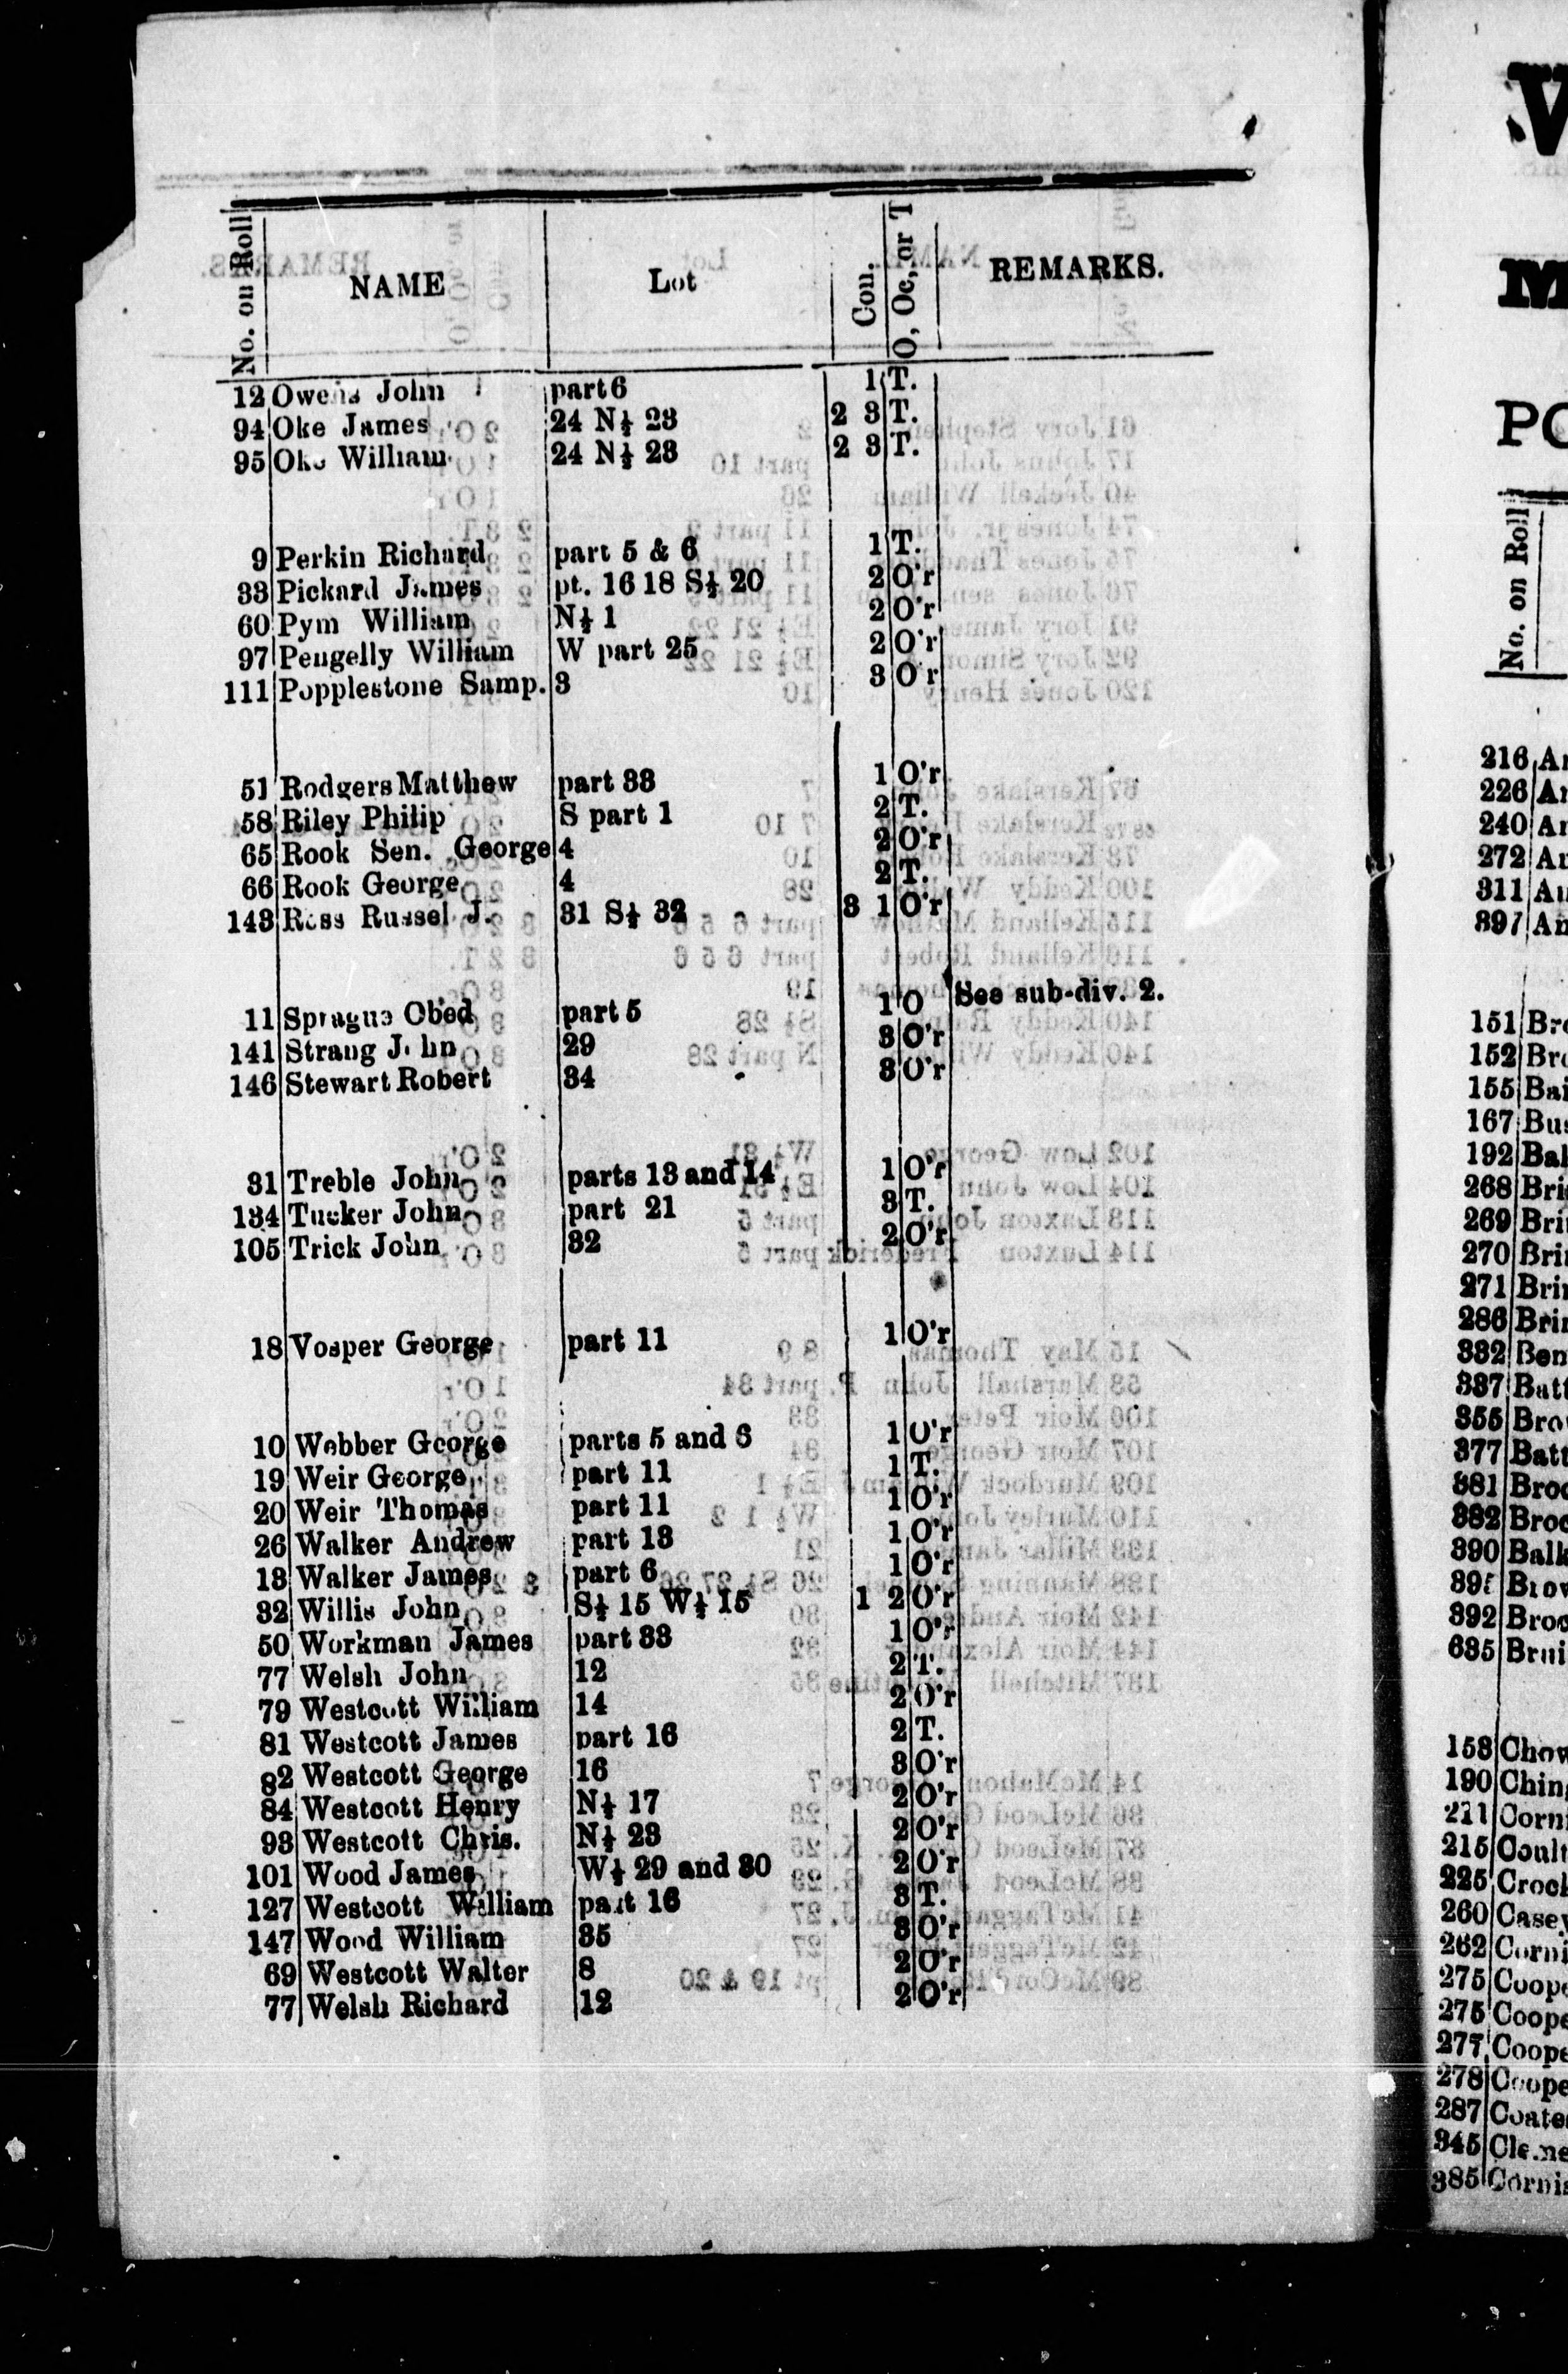 No. on Roll NAME Lot Con. O, Oc, or T REMARKS.
12 Owens John part 6 1 T.
94 Oke James 24 N½ 23 2 3 T.
95 Oke William 24 N½ 23 2 3 T.
9 Perkin Richard part 5 & 6 1 T.
33 Pickard James pt. 16 18 S½ 20 2 O'r
60 Pym William N½ 1 2 O'r
97 Pengelly William W part 25 2 O'r
111 Popplestone Samp. 3 3 O'r
51 Rodgers Matthew part 33 1 O'r
58 Riley Philip S part 1 2 T.
65 Rook Sen. George 4 2 O'r
66 Rook George 4 2 T.
143 Ross Russel J. 31 S½ 32 3 1 O'r
11 Sprague Obed part 5 1 O See sub-div. 2.
141 Strang John 29 3 O'r
146 Stewart Robert 34 3 O'r
31 Treble John parts 13 and 14 1 O'r
134 Tucker John part 21 3 T.
105 Trick John 32 2 O'r
18 Vosper George part 11 1 O'r
10 Webber George parts 5 and 6 1 O'r
19 Weir George part 11 1 T.
20 Weir Thomas part 11 1 O'r
26 Walker Andrew part 13 1 O'r
13 Walker James part 6 1 O'r
32 Willis John S½ 15 W½ 15 1 2 O'r
50 Workman James part 33 1 O'r
77 Welsh John 12 2 T.
79 Westcott William 14 2 O'r
81 Westcott James part 16 2 T.
82 Westcott George 16 3 O'r
84 Westcott Henry N½ 17 2 O'r
93 Westcott Chris. N½ 23 2 O'r
101 Wood James W½ 29 and 30 2 O'r
127 Westcott William part 16 3 T.
147 Wood William 35 3 O'r
69 Westcott Walter 8 2 O'r
77 Welsh Richard 12 2 O'r
V
M
PO
No. on Roll
216 An
226
240
272
311
397 An
151 Bro
152 Bro
155 Bai
167 Bus
192 Bal
268 Bri
269 Bri
270 Bri
271 Brin
286 Brin
332 Ben
337 Batt
355 Bro
377 Batt
381 Broo
382 Broo
390 Balk
Brow
392 Broo
635
158 Chow
190 Ching
211 Corni
215 Coult
225 Crock
260 Casey
262 Corni
275 Coope
275 Coope
277 Coope
278 Coope
287 Coate
345
385 Cornis